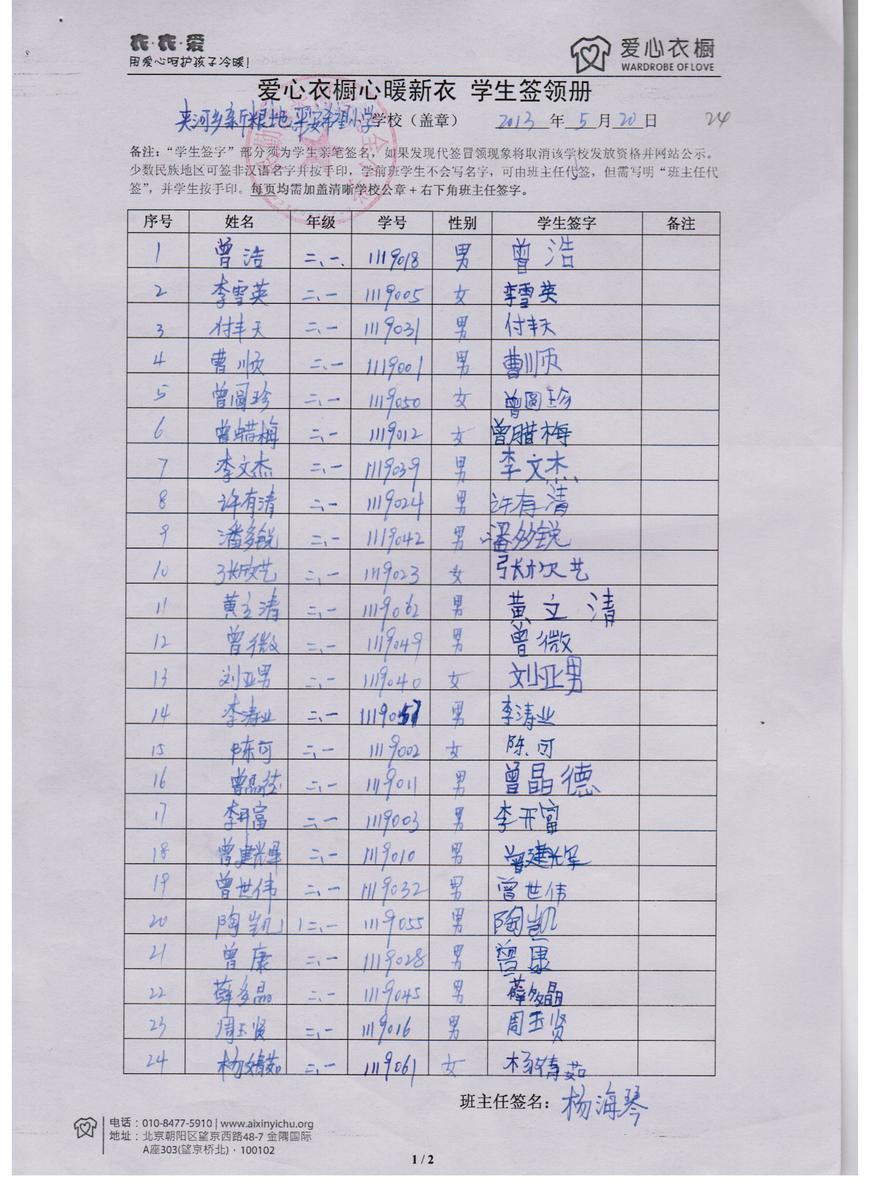 衣·衣·爱
用爱心呵护孩子冷暖!
爱心衣橱
WARDROBE OF LOVE
爱心衣橱心暖新衣 学生签领册
夹河乡新粮地平安希望小学学校（盖章） 2013 年 5 月 20 日 24
备注：“学生签字”部分须为学生亲笔签名，如果发现代签冒领现象将取消该学校发放资格并网站公示。
少数民族地区可签非汉语名字并按手印，学前班学生不会写名字，可由班主任代签，但需写明“班主任代
签”，并学生按手印。每页均需加盖清晰学校公章+右下角班主任签字。
序号 姓名 年级 学号 性别 学生签字 备注
1 曾浩 二、一、 1119018 男 曾浩
2 李雪英 二、一 1119005 女 李雪英
3 付丰天 二、一 1119031 男 付丰天
4 曹顺 二、一 1119001 男 曹顺
5 曾圆珍 二、一 1119050 女 曾圆珍
6 曾蜡梅 二、一 1119012 女 曾腊梅
7 李文杰 二、一 1119039 男 李文杰
8 许有清 二、一 1119024 男 许有清
9 潘多锐 二、一 1119042 男 潘多锐
10 二、一 1119023 女
11 黄立清 二、一 1119062 男 黄立清
12 曾微 二、一 1119049 男 曾微
13 刘亚男 二、一 1119040 女 刘亚男
14 李涛业 二、一 1119057 男 李涛业
15 陈可 二、一 1119002 女 陈可
16 曾晶德 二、一 1119011 男 曾晶德
17 李开富 二、一 1119003 男 李开富
18 曾建辉 二、一 1119010 男 曾建辉
19 曾世伟 二、一 1119032 男 曾世伟
20 陶凯 二、一 1119055 男 陶凯
21 曾康 二、一 1119028 男 曾康
22 薛多晶 二、一 1119045 男 薛多晶
23 周玉贤 二、一 1119016 男 周玉贤
24 杨婧茹 二、一 1119061 女 杨婧茹
班主任签名：杨海琴
电话：010-8477-5910 | www.aixinyichu.org
地址：北京朝阳区望京西路48-7 金隅国际
A座303(望京桥北)·100102
1 / 2